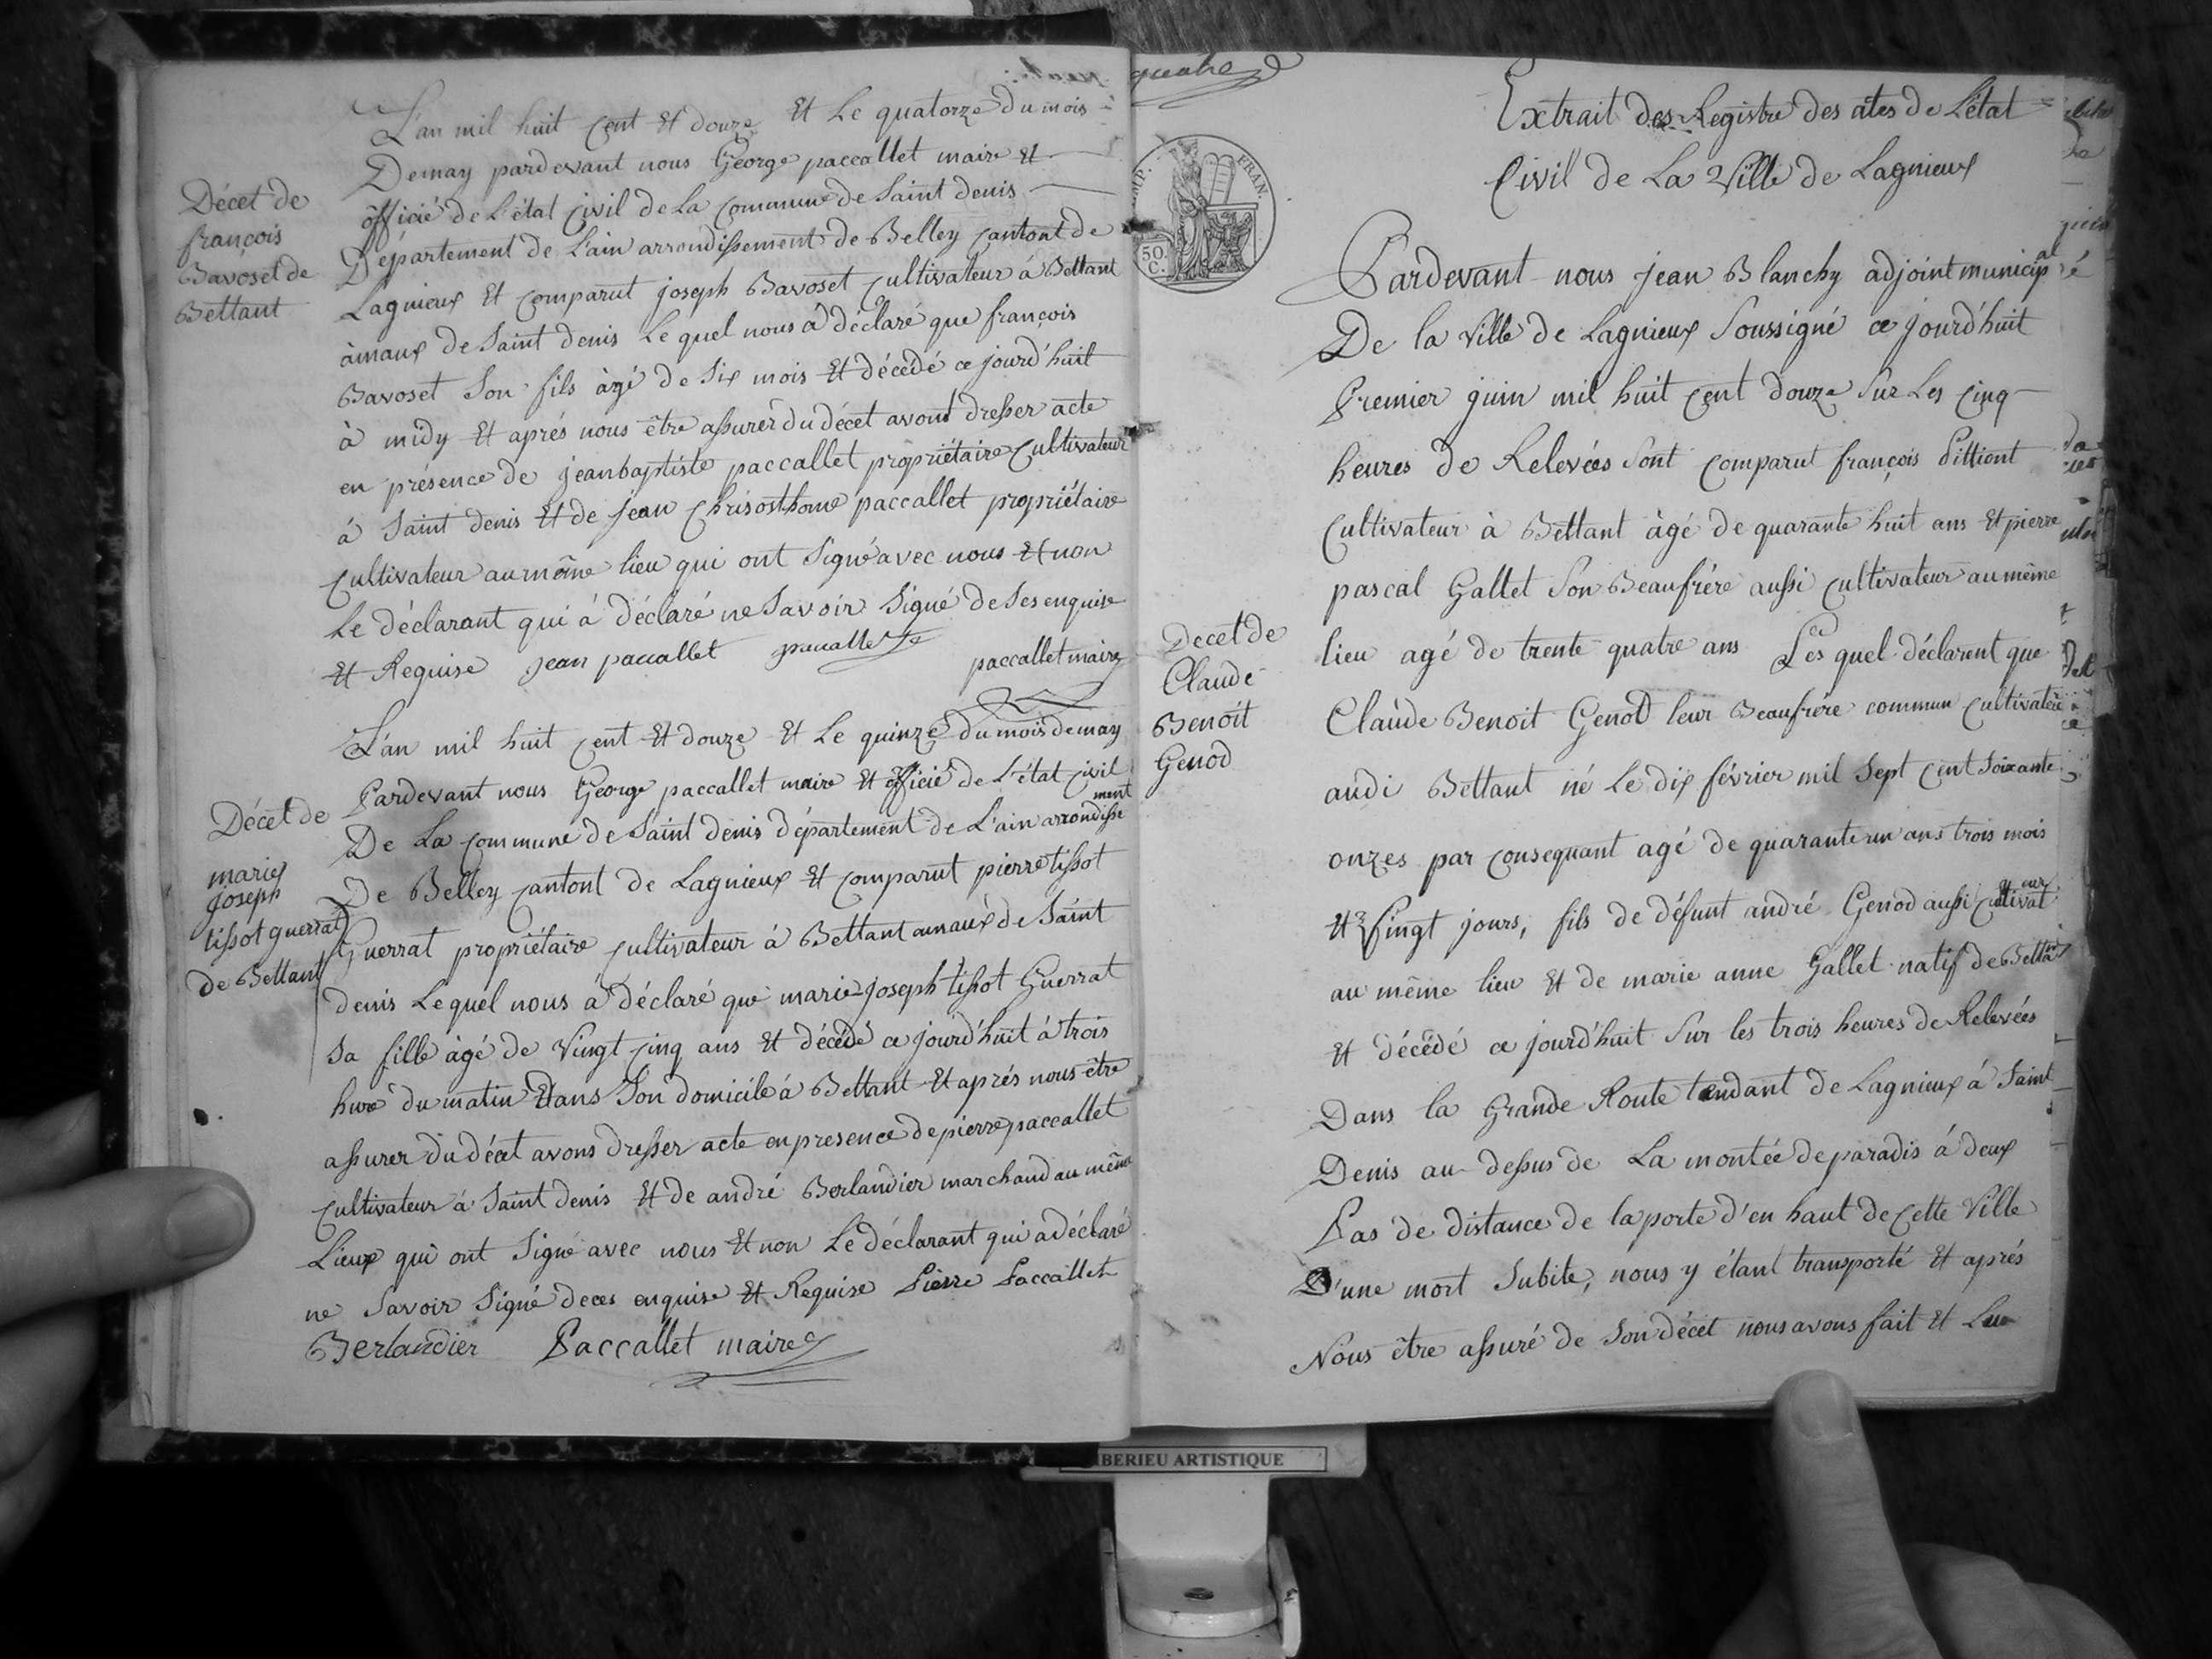 L'an mil huit cent Et douze Et Le quatorze du mois
Demay pardevant nous George paccallet maire Et
officié de L'état Civil de La Commune de Saint denis
Département de L'ain arrondissement de Belley Cantont de
Lagnieux Et Comparut joseph Bavoset Cultivateur á Bettant
àmaux de Saint denis Le quel nous á déclaré que françois
Bavoset Son fils àgé de Six mois Et décédé ce jourd'huit
à midy Et aprés nous être assurer du décet avont dresser acte
en présence de jeanbaptiste paccallet propriétaire Cultivateur
á Saint denis Et de jean Chrisosthome paccallet propriétaire
Cultivateur au même lieu qui ont Signé avec nous Et non
Le déclarant qui á déclaré ne Savoir Signé de Ses enquise
Et Requise jean paccallet paccallet
paccallet maire
Décet de
françois
Bavoset de
Bettant
L'an mil huit Cent Et douze Et Le quinze du mois demay
Pardevant nous George paccallet maire Et officié de L'état Civil
De La Commune de Saint denis département de L'ain arrondisse
ment
De Belley Cantont de Lagnieux Et Comparut pierre tissot
Guerrat propriétaire Cultivateur à Bettant amaux de Saint
denis Lequel nous á déclaré que marie joseph tissot Guerrat
Sa fille àgé de Vingt Cinq ans Et décédé ce jourd'huit á trois
hure du matin Dans Son domicile á Bettant Et aprés nous être
assurer du décet avons dresser acte en presence de pierre paccallet
Cultivateur á Saint denis Et de andré Berlandier marchand au même
Lieux qui ont Signé avec nous Et non Le déclarant qui a déclaré
ne Savoir Signé de ces enquise Et Requise Pierre Paccallet
Berlandier Paccallet maire
Décet de
marie
joseph
tissot guerrat
de Bettant
quatre
FRAN.
50
C.
Extrait des Registre des àtes de L'état
Civil de La Ville de Lagnieux
Pardevant nous jean Blanchy adjoint municipal
De la Ville de Lagnieux Soussigné ce jourd'huit
Premier juin mil huit Cent douze Sur Les Cinq
heures de Relevées Sont Comparut françois Pittiont
Cultivateur à Bettant àgé de quarante huit ans Et pierre
pascal Gallet Son Beaufrére aussi Cultivateur au même
lieu agé de trente quatre ans Les quel déclarent que
Claude Benoit Genod leur Beaufrére commun Cultivateur
audi Bettant né Le dix février mil Sept Cent Soixante
onzes par Consequant agé de quarante un ans trois mois
Et Vingt jours, fils de défunt andré Genod aussi Cultivateur
au même lieu Et de marie anne Gallet natif de Bettant
Et décédé ce jourd'huit Sur les trois heures de Relevées
Dans la Grande Route tendant de Lagnieux á Saint
Denis au dessus de La montée de paradis à deux
Pas de distance de la porte d'en haut de Cette Ville
D'une mort Subite, nous y étant transporté Et aprés
Nous être assuré de Son décet nous avons fait Et Lu
Decet de
Claude
Benoit
Genod
BERIEU ARTISTIQUE